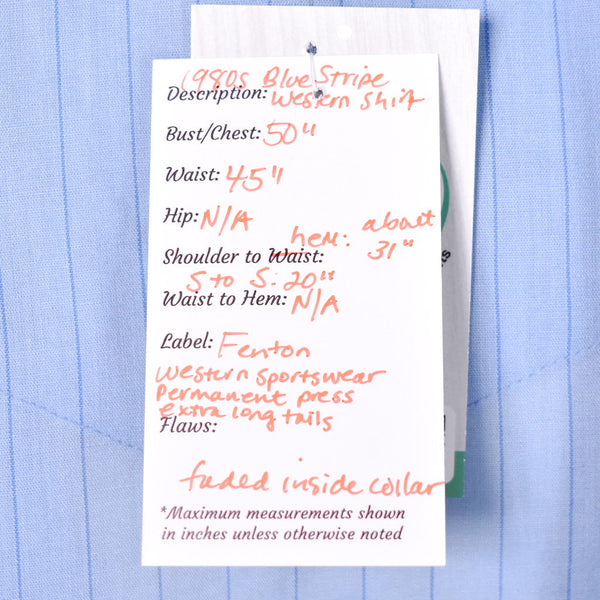 1980s Blue Stripe
Description: Western Shirt
Bust/Chest: 50"
Waist: 45"
Hip: N/A
hem: about
Shoulder to Waist: 31"
S to S: 20"
Waist to Hem: N/A
Label: Fenton
Western Sportswear
Permanent press
extra long tails
Flaws:
faded inside collar
*Maximum measurements shown
in inches unless otherwise noted